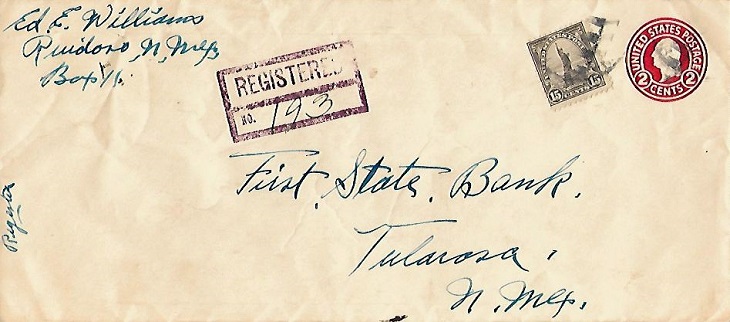 Ed. E. Williams
Ruidoso, N, Mex,
Box 11.
REGISTERED
NO. 193
15 CENTS 15
UNITED STATES POSTAGE
2 CENTS 2
First, State, Bank,
Tularosa,
N. Mex.
Register